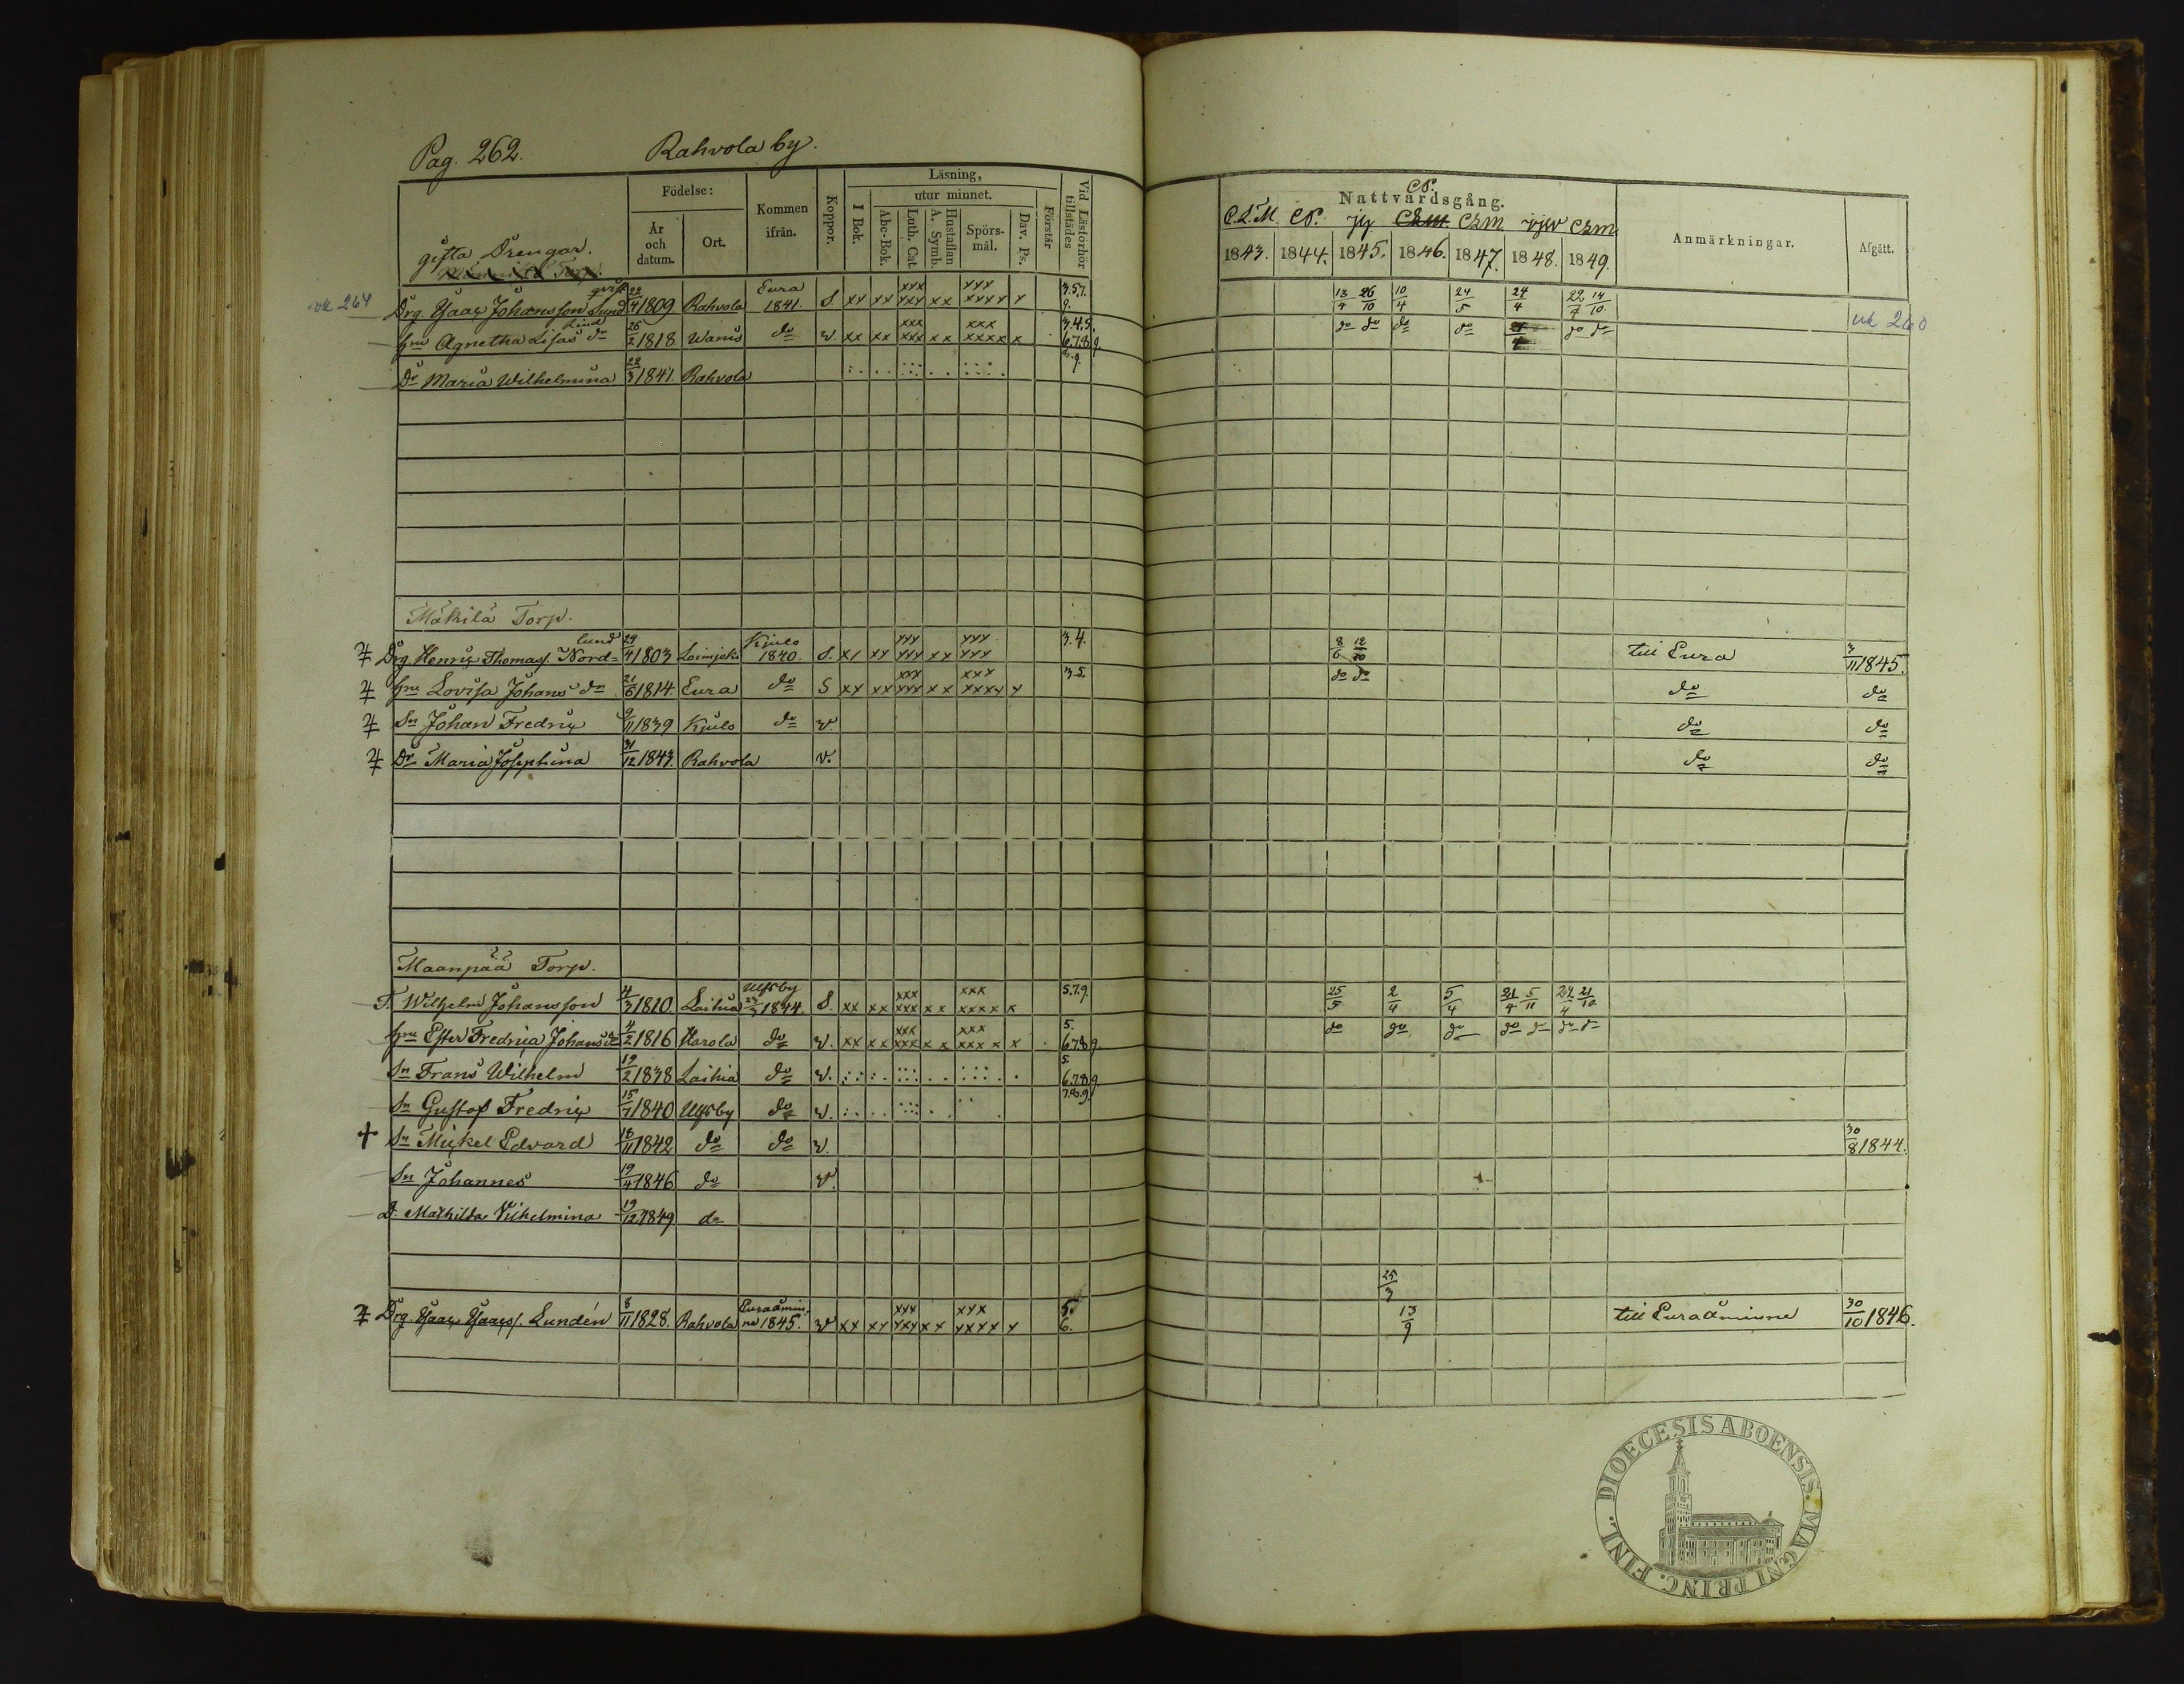 Pag. 262. Rahvola by.
Födelse: Kommen ifrån. Koppor. Läsning, Vid Läsförhör tillstädes
År och datum. Ort. I Bok. utur minnet. Förstår
Abc-Bok. Luth. Cat. Hustaflan A. Symb. Spörs-mål. Dav. Ps.
gifta Drengar.
CS.
Nattvardsgång. Anmärkningar. Afgått.
C.L.M. CS. CLM CLM
1843. 1844. 1845. 1846. 1847. 1848. 1849.
264 Drg Isaac Johansson Lundqvist 22/4 1809 Rahvola Eura 1841. S. xx xx xxx xxx xx xxx xxxx x 3.5.7. 9. 13/4 26/10 10/4 24/5 24/4 22/7 14/10 260
hu Agnetha Lisas Lind dr 26/2 1818 Wanis do v. xx xx xxx xxx xx xxx xxxx x 3.4.5. 6.7.8.9. do do do do do do
Dr Maria Wilhelmina 22/3 1841. Rahvola 8.9.
Mäkilä Torp.
Drg Henric Thomass. Nordlund 29/4 1803 Loimjoki Kjulo 1840. S. xx xx xxx xxx xx xxx xxx 3.4. 8/6 12/10 till Eura 3/11 1845.
hu Lovisa Johans dr 21/6 1814 Eura do S xx xx xxx xxx xx xxx xxxx x 3.5. do do do do
Sn Johan Fredric 9/11 1839 Kjulo do v. do do
Dr Maria Josephina 31/12 1843. Rahvola v. do do
Maanpää Torp.
T. Wilhelm Johansson 4/3 1810 Laihia Ulfsby 23/3 1844. S. xx xx xxx xxx xx xxx xxxx x 5.7.9. 25/5 2/4 5/4 21/4 5/11 22/4 21/10
hu Ester Fredrica Johans dr 4/2 1816 Harola do v. xx xx xxx xxx xx xxx xxxx x 5. 6.7.8.9. do do do do do do do
Sn Frans Wilhelm 19/2 1838 Laihia do v. 5. 6.7.8.9
Sn Gustaf Fredric 15/7 1840 Ulfsby do v. 7.8.9.
Sn Mickel Edvard 18/11 1842 do do v. 30/8 1844.
Sn Johannes 19/4 1846 do v.
D. Mathilda Vilhelmina 19/12 1849 do
Drg Isaac Isaacs. Lundén 8/11 1828. Rahvola Euraåminne 1845. v xx xx xxx xxx xx xxx xxxx x 5. 6. 25/3 13/9 till Euraåminne 30/10 1846.
DIOECESIS ABOENSIS. MAGNI PRINC. FINL.